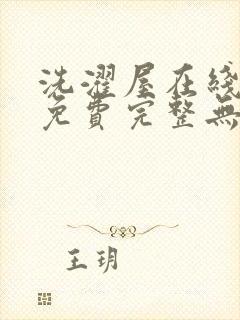 洗濯屋在綫
免費完整無
王玥